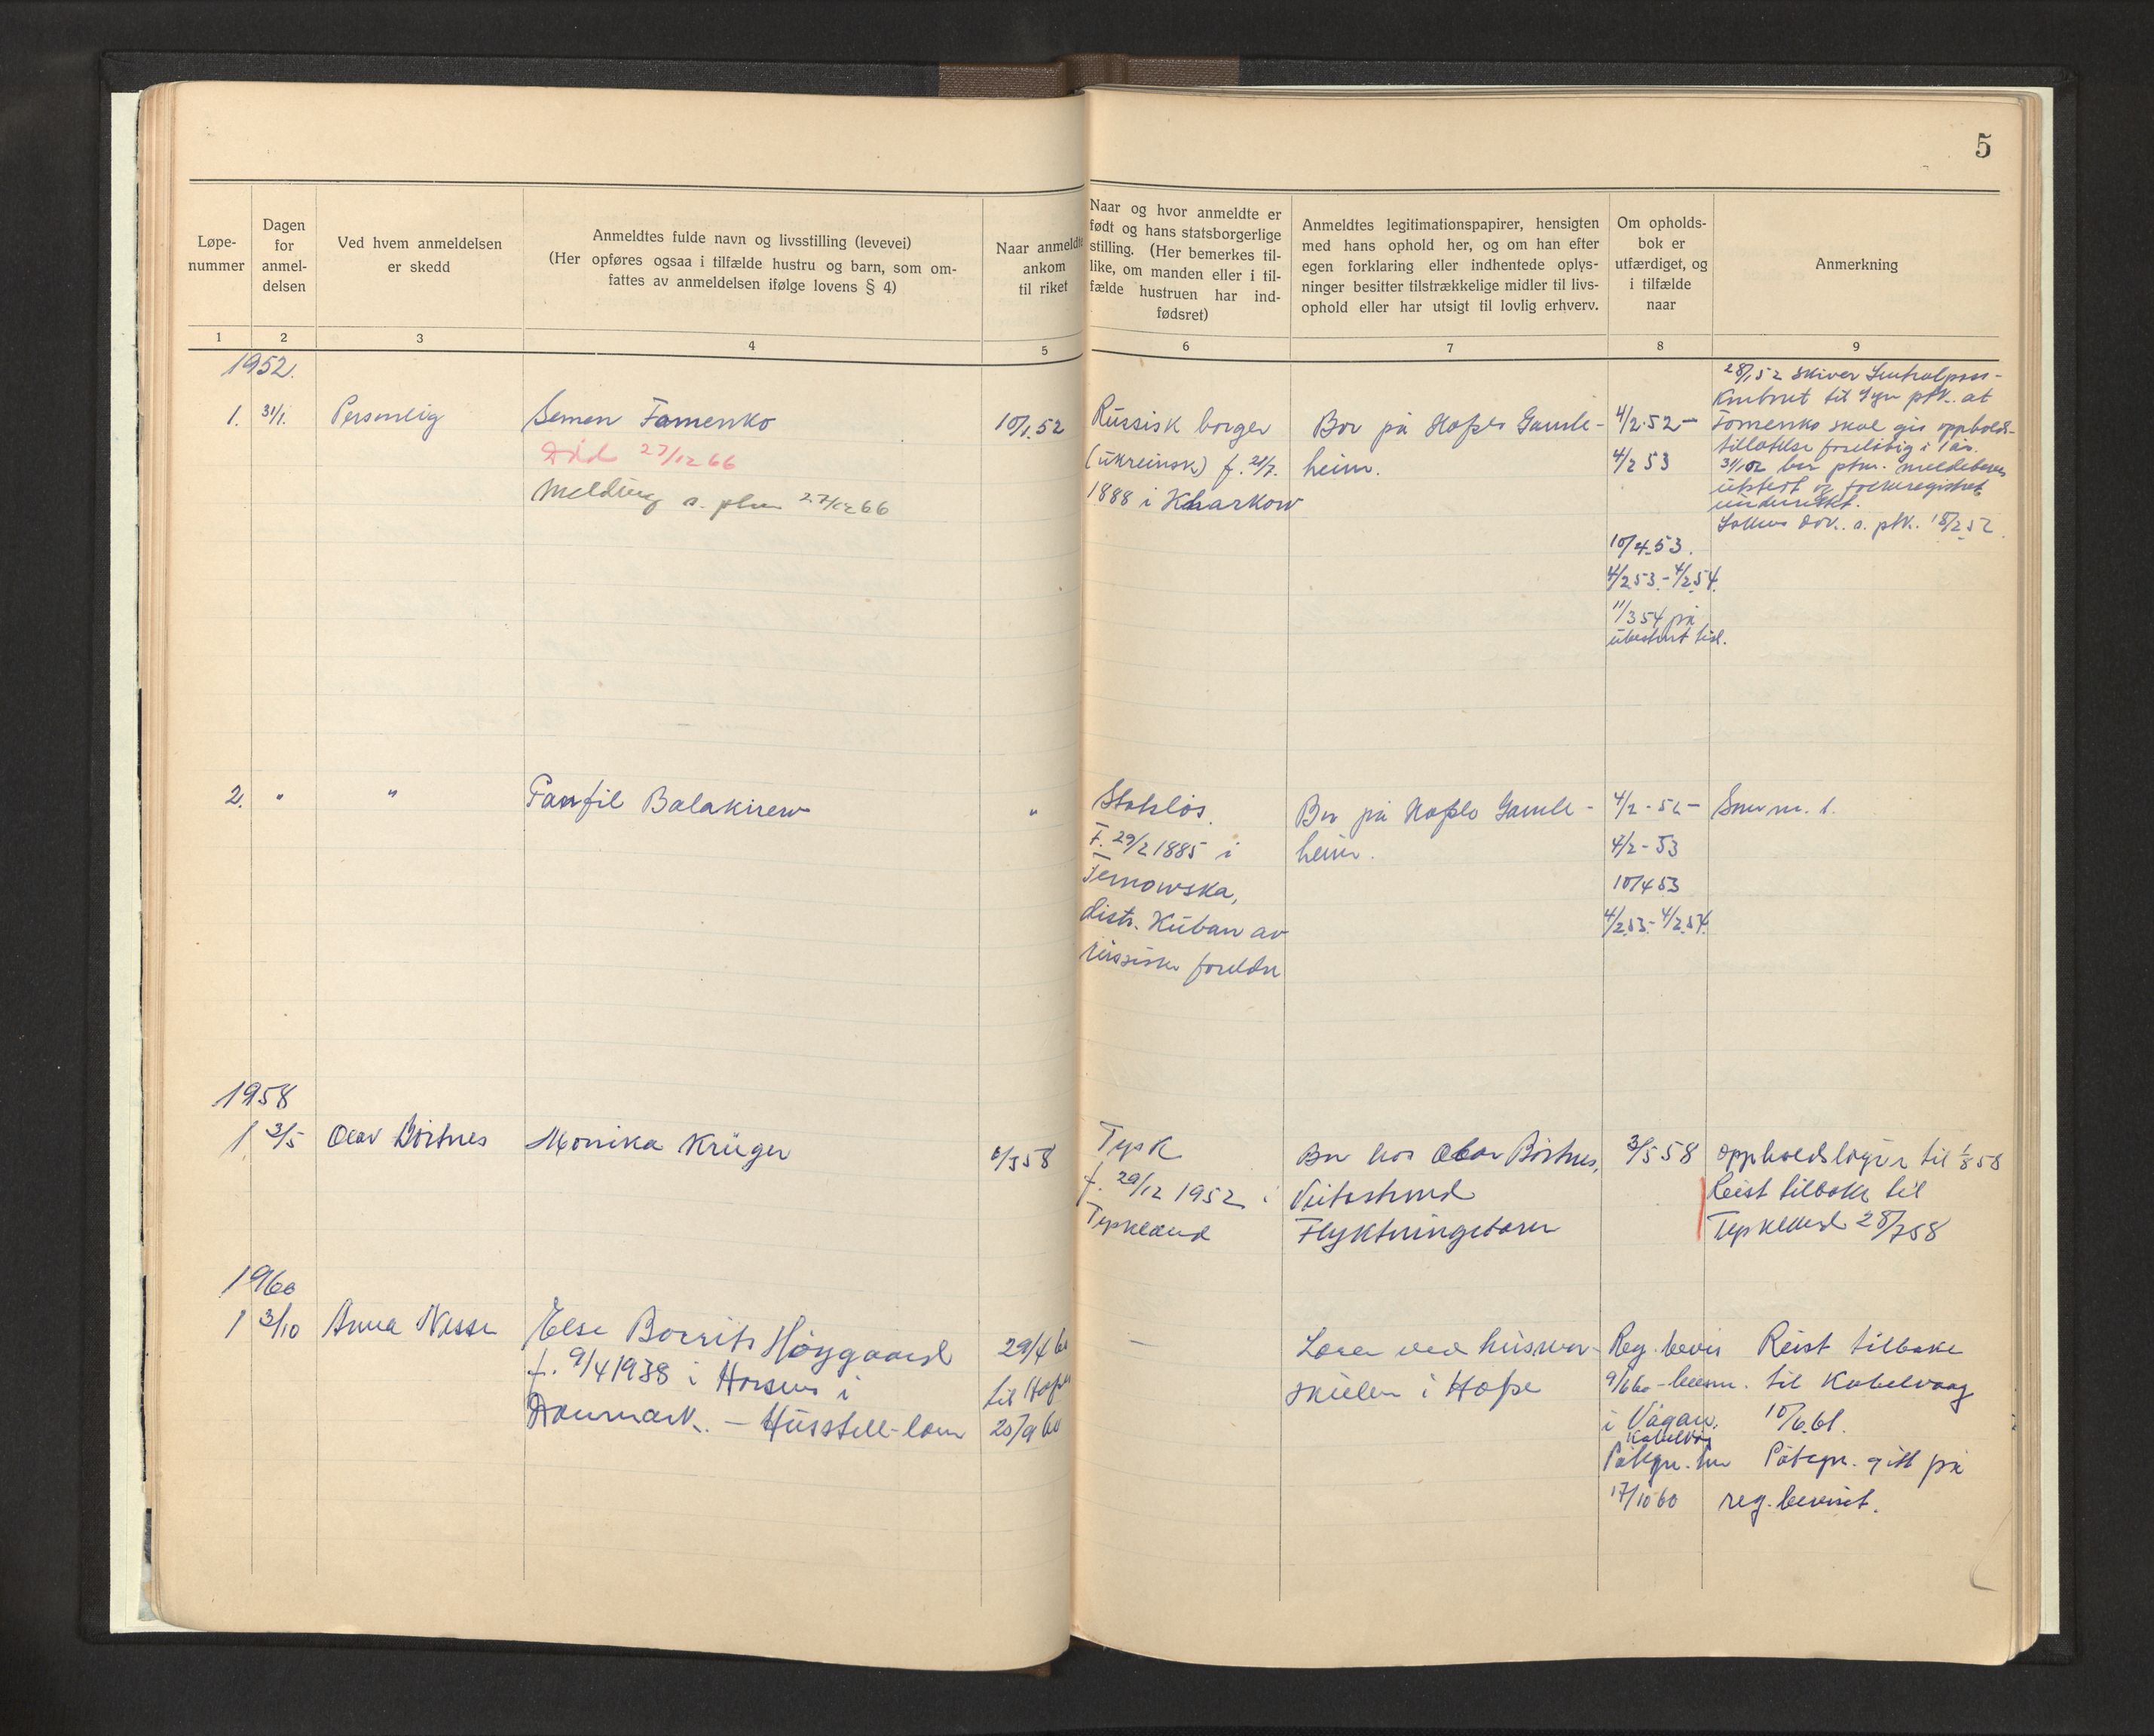 5
Løpe-
nummer
Dagen
for
anmel-
delsen
Ved hvem anmeldelsen
er skedd
Anmeldtes fulde navn og livsstilling (levevei)
(Her opføres ogsaa i tilfælde hustru og barn, som om-
fattes av anmeldelsen ifølge lovens § 4)
Naar anmeldte
ankom
til riket
Naar og hvor anmeldte er
født og hans statsborgerlige
stilling. (Her bemerkes til-
like, om manden eller i til-
fælde hustruen har ind-
fødsret)
Anmeldtes legitimationspapirer, hensigten
med hans ophold her, og om han efter
egen forklaring eller indhentede oplys-
ninger besitter tilstrækkelige midler til livs-
ophold eller har utsigt til lovlig erhverv.
Om opholds-
bok er
utfærdiget, og
i tilfælde
naar
Anmerkning
1 2 3 4 5 6 7 8 9
1952.
1. 31/1. Personlig
Semen Fomenko
Død 27/12 66
Melding 27/12 66
10/1.52
Russisk borger
(ukreinsk) f. 21/7.
1888 i Kharkow
Bor på Hafslo Gamle-
heim.
4/2.52 –
4/2 53
10/4.53.
4/2 53. - 4/2 54.
11/3 54 på
ubestemt tid.
28/1.52 skiver Sentralpass-
kontoret til ptk. at
Fomenko skal gis oppholds-
tillatelse foreløbig i 1 år.
meldebevis
utstedt og folkeregistret
underrettet.
ptk. 18/2 52.
2. " "
Panfil Balakirew
"
Statsløs.
F. 29/2 1885 i
Ternowska,
distr. Kuban av
russiske foreldre
Bor på Hafslo Gamle-
heim.
4/2 - 52 –
4/2 - 53
10/4 53
4/2 53. - 4/2 54.
Som nr. 1.
1958
1 3/5 Olav Børtnes
Monika Krüger
Tysk
f. 29/12 1952 i
Tyskland
Bor hos Olav Børtnes,
Veitastrond
Flyktningebarn
3/5 58
oppholdsløyve til 1/8 58
Reist tilbake til
Tyskland 28/7 58
1960
1 3/10 Anna Nesse
Else Borrits Høygaard
f. 9/4 1938 i Horsens i
Danmark. – Husstell-lær.
29/4 60
til
20/9 60
—
Lærer ved husmor-
skulen i Hafslo
Reg. bevis
9/6 60 - lensm.
i Vågan,
Kabelvåg
Påtegn.
17/10 60
Reist tilbake
til Kabelvaag
10/6.61.
Påtegn. gitt på
reg. beviset.